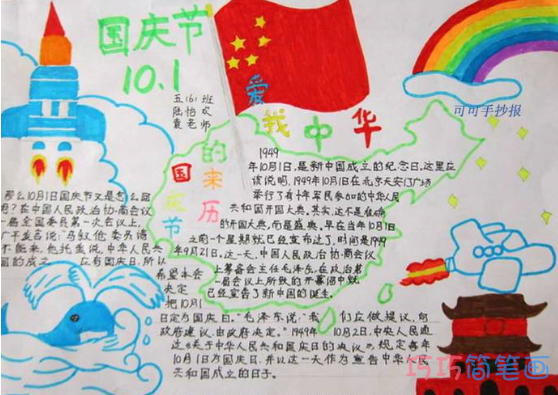 国庆节
10.1
五(6)班
陆怡欢
袁老师
爱我中华
可可手抄报
国庆节的来历
1949
年10月1日,是新中国成立的纪念日。这里应
该说明,1949年10月1日在北京天安门广场
举行了有十年军民参加的中华人民
共和国开国大典,其实,这不是准确
的开国大典,而是盛典。早在当年10月1日
之前一个星期就已经宣布过了。时间是1949
年9月21日。这一天,中国人民政治协商会议
上筹备会主任毛泽东,在政治第
一届会议上所致的开幕语中就
已经宣告了新中国的诞生。
那么10月1日国庆节又是怎么回
事?在中国人民政治协商会议
一届全国委员第一次会议上,
马叙伦委员请
不能来,他托我说,中华人民共和
国的成立,应有国庆日,所以
希望本会
决定
把10月1
日定为国庆日。"毛泽东说:"我们应做提议,向
政府建议,由政府决定。"1949年10月2日,中央人民通
过《关于中华人民共和国国庆日的决议》,规定每年
10月1日为国庆日,并以这一天作为宣告中华人民
共和国成立的日子。
巧巧简笔画